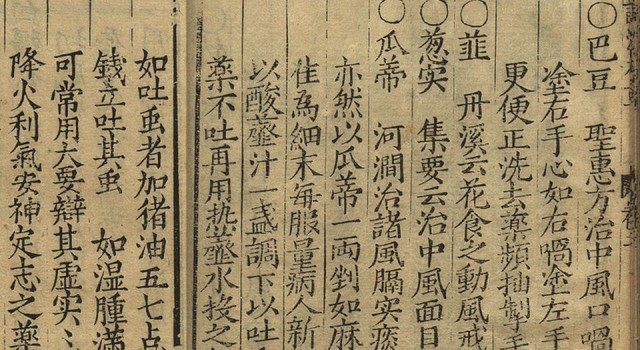 ○巴豆 聖惠方治中風口喎
塗右手心如右喎塗左手
更便正洗去藥頻抽掣手
○韮 丹溪云花食之動風戒
○葱实 集要云治中風面目
○瓜蒂 河澗治諸風膈实痰
亦然以瓜蒂一両剉如麻
佳為細末每服量病人新
以酸虀汁一盏調下以吐
藥不吐再用热虀水投之
如吐虫者加猪油五七点
錢立吐其虫 如湿腫滿
可常用六要辯其虚实
降火利氣安神定志之藥